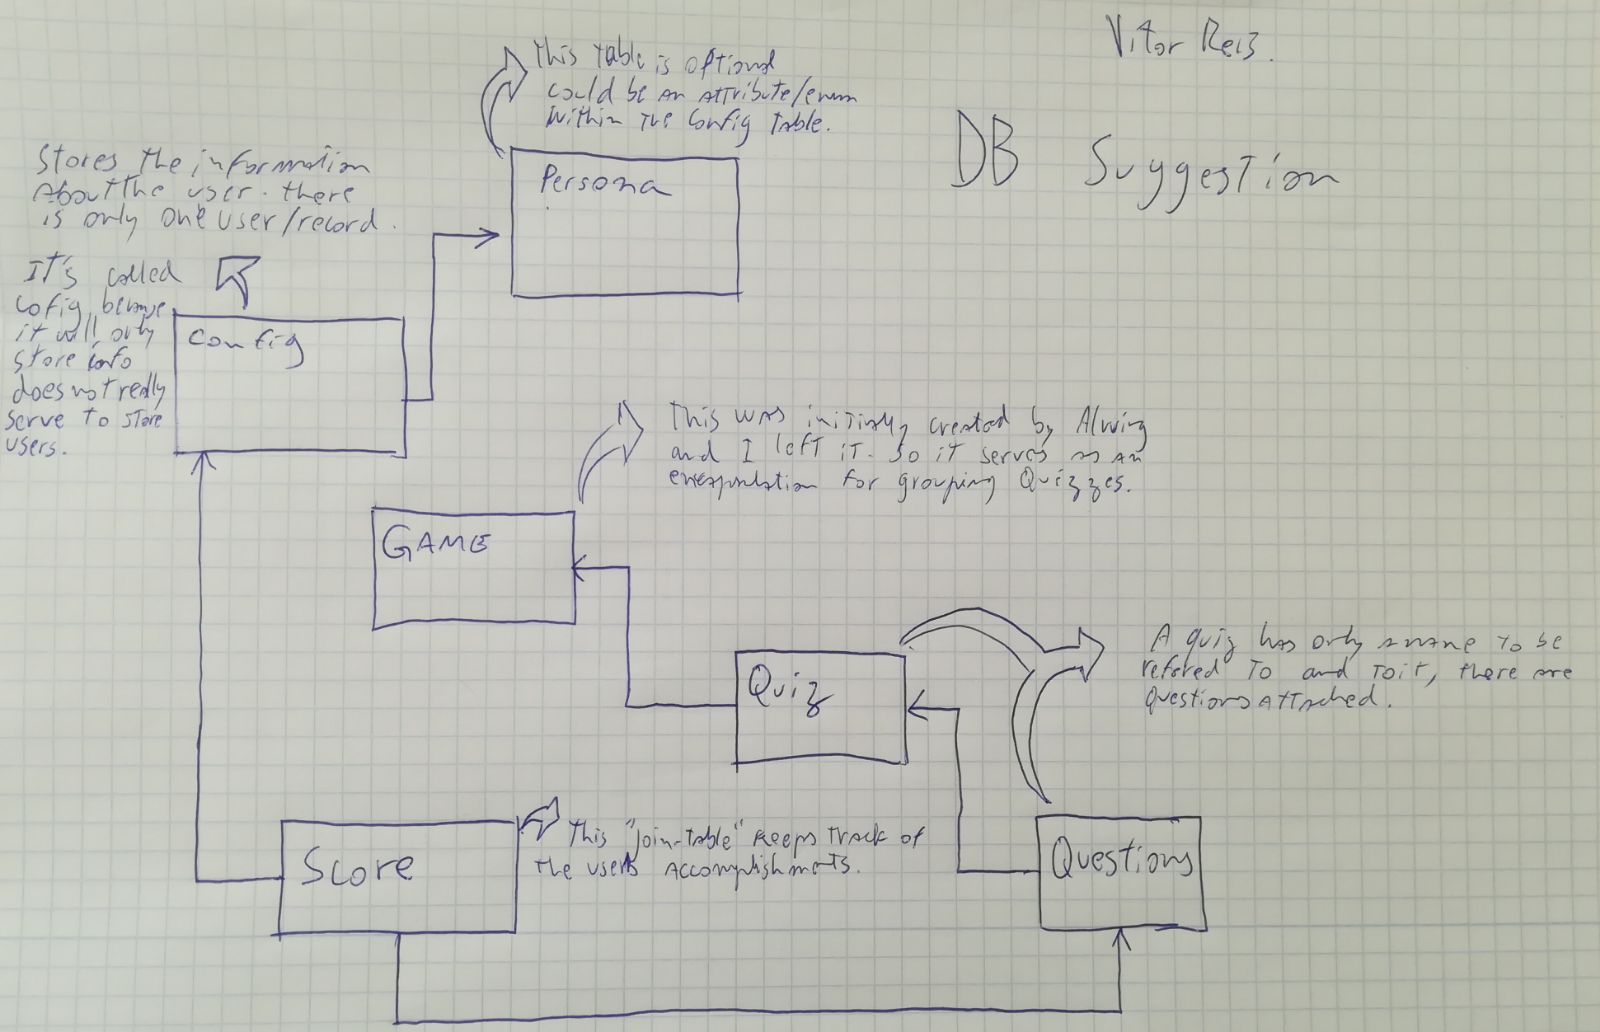 Vitor Reis.
DB Suggestion
This table is optional
could be an attribute/enum
within the config table.
Persona
Stores the information
About the user. there
is only one user/record.
It's called
cofig, because
it will only
store info
does not really
serve to store
users.
Config
This was initially created by
and I left it. So it serves as an
encapsulation for grouping Quizzes.
GAME
Quiz
A quiz has only a name to be
refered to and to it, there are
questions attached.
Score
This "join-table" keeps track of
the users accomplishments.
Questions